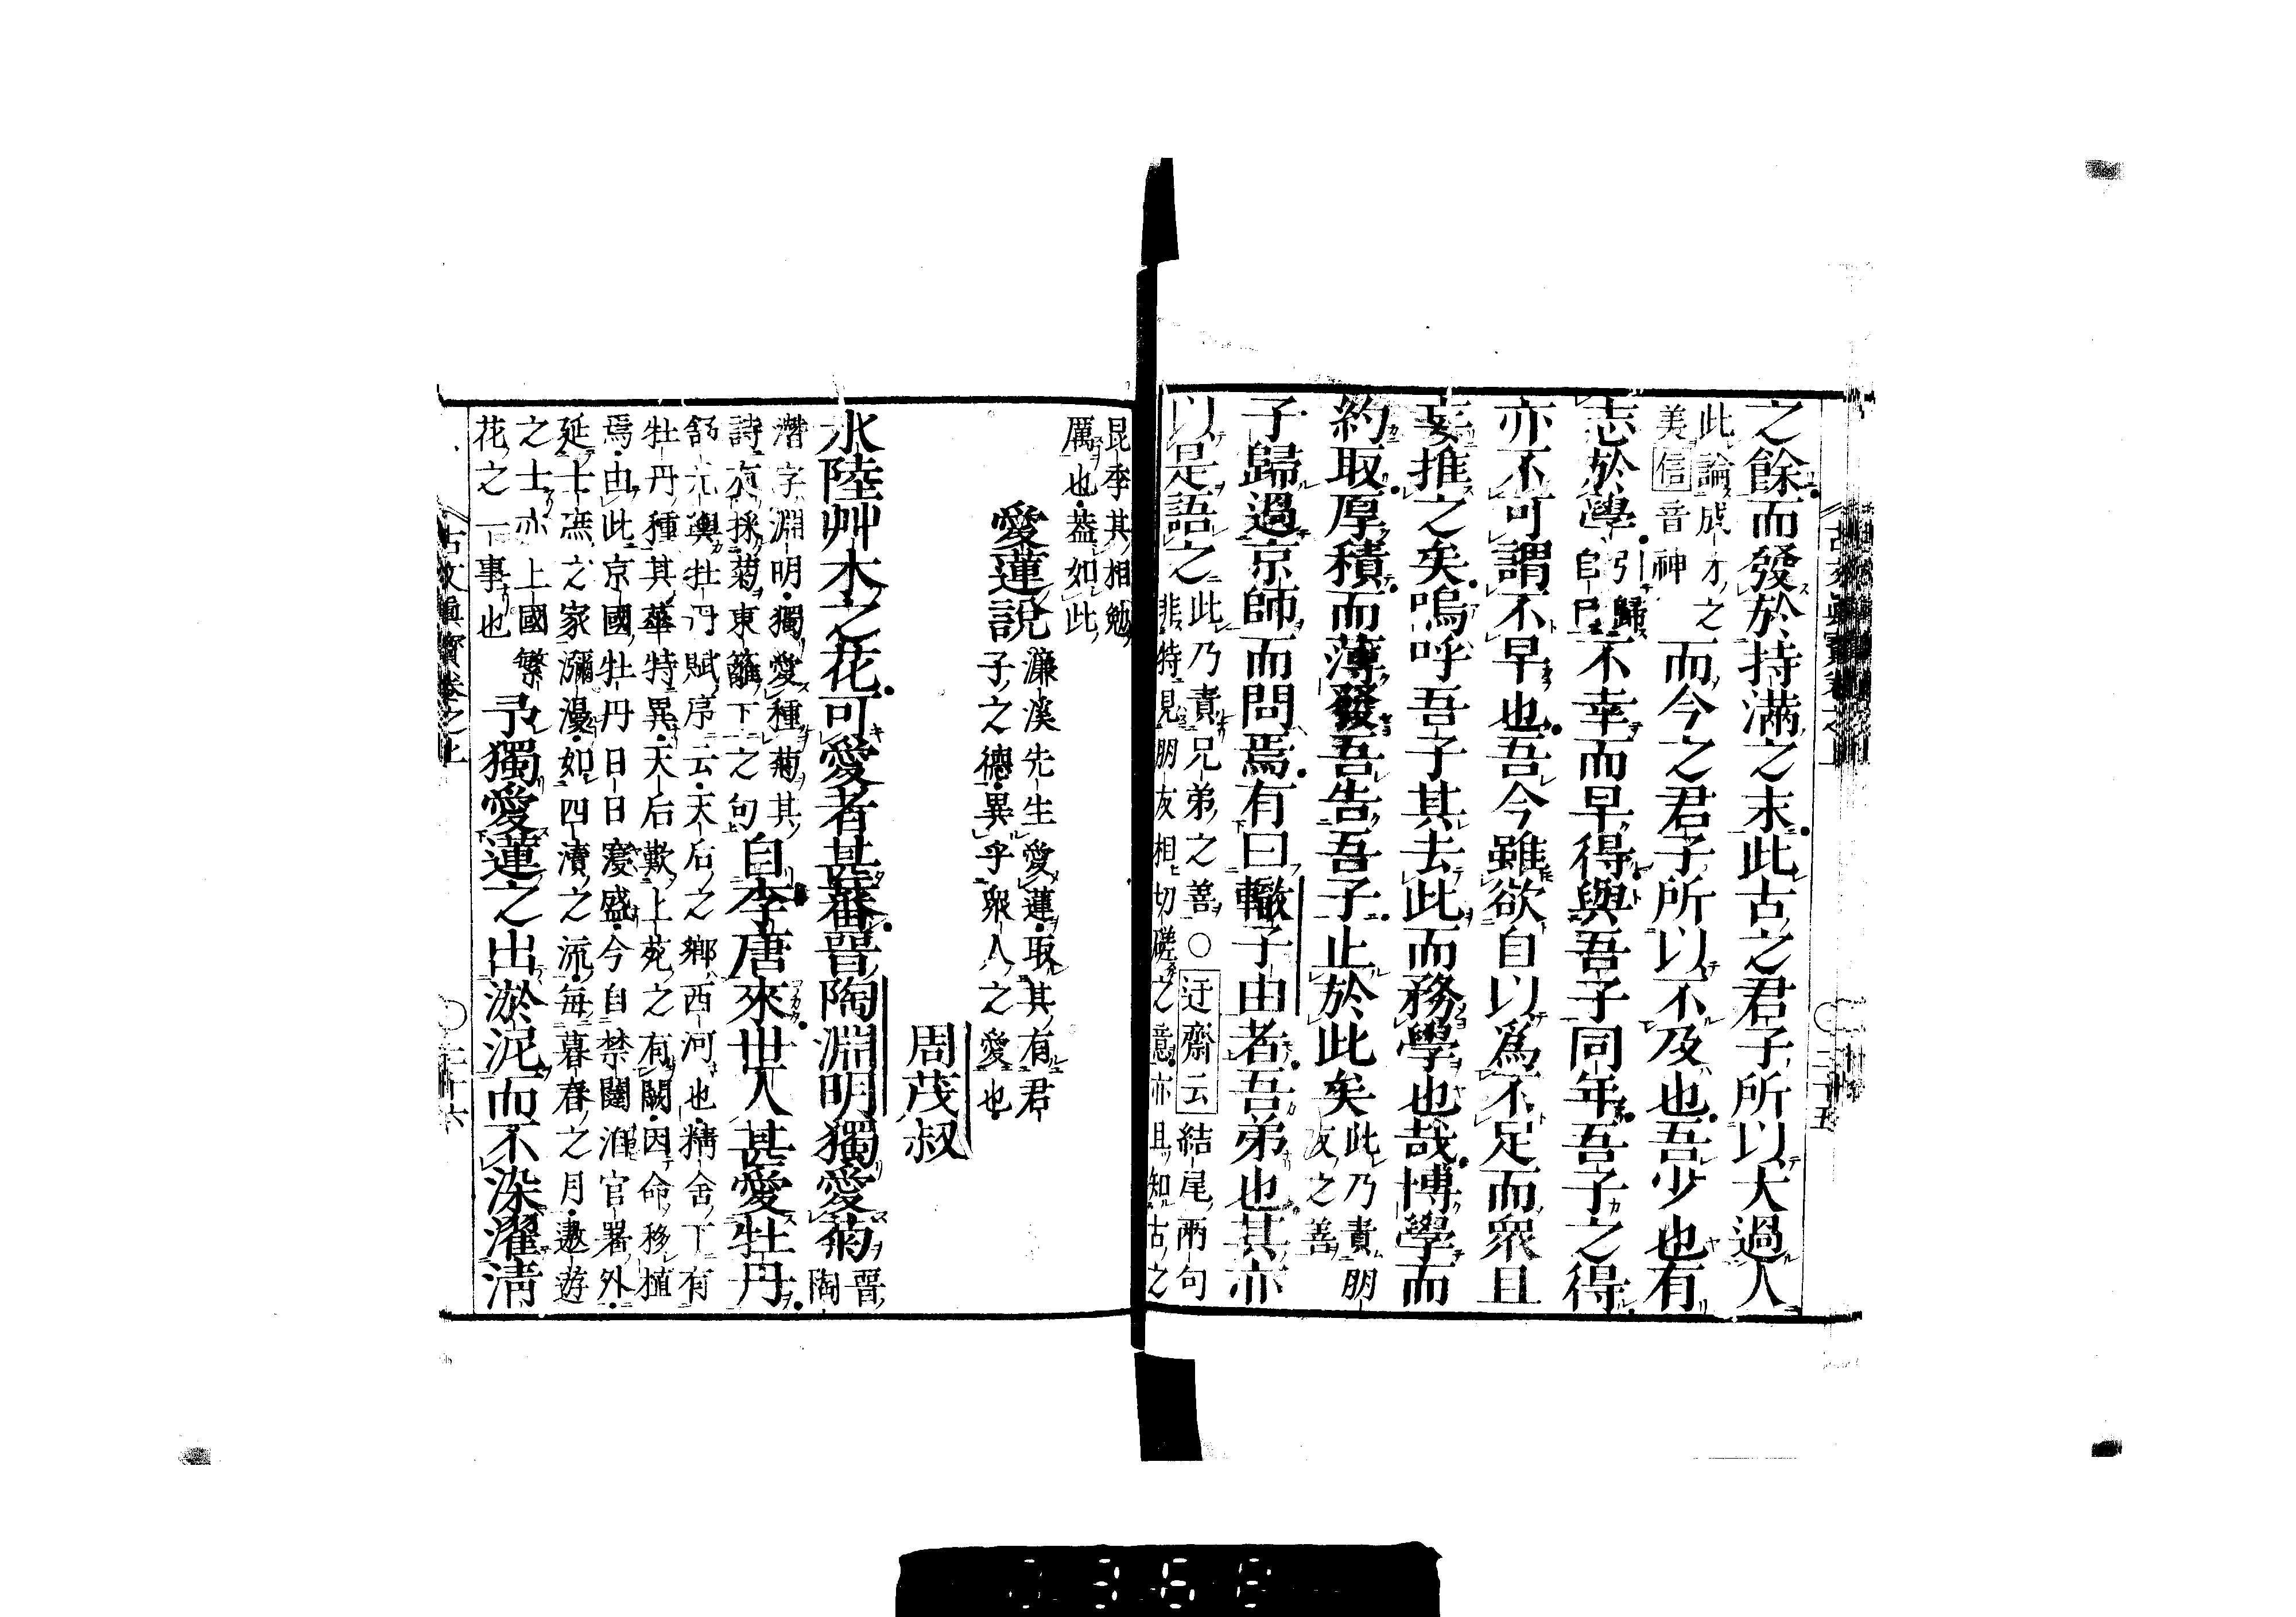 之餘而發於持滿之末此古之君子所以大過人
此論成才之
美信音神
而今之君子所以不及也吾少也有
志於學
引歸
自己
不幸而早得與吾子同年吾子之得
亦不可謂不早也吾今雖欲自以爲不足而眾且
妄推之矣嗚呼吾子其去此而務學也哉博學而
約取厚積而薄發吾告吾子止於此矣
此乃責朋
友之善
子歸過京師而問焉有曰轍子由者吾弟也其亦
以是語之
此乃責兄弟之善○迂齋云結尾兩句
非特見朋友相切磋之意亦且知古之
昆季其相勉
厲也蓋如此
愛蓮說
濂溪先生愛蓮取其有君
子之德異乎眾人之愛也
周茂叔
水陸艸木之花可愛者甚蕃晉陶淵明獨愛菊
晉陶
潛字淵明獨愛種菊其
詩有採菊東籬下之句
自李唐來世人甚愛牡丹
舒元輿牡丹賦序云天后之鄉西河也精舍下有
牡丹種其華特異天后歎上苑之有闕因命移植
焉由此京國牡丹日日寖盛今自禁闥洎官署外
延士庶之家瀰漫如四瀆之流每暮春之月遨遊
之士亦上國繁
花之一事也
予獨愛蓮之出淤泥而不染濯清
古文眞寶卷之上
二十六